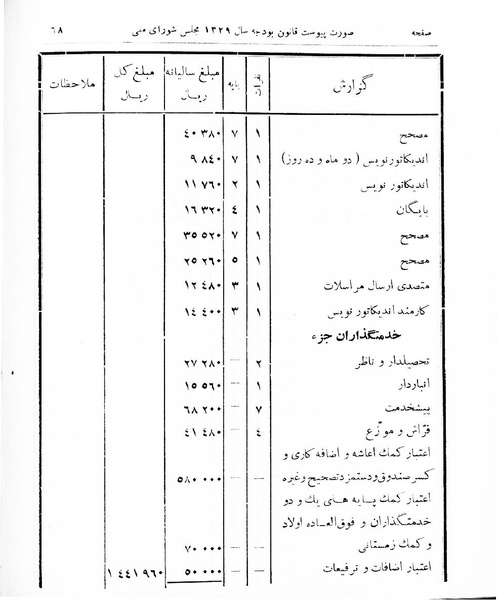 صفحه صورت پیوست قانون بودجه سال ۱۳۲۹ مجلس شورای ملی ٦٨
گزارش نفرات پایه مبلغ سالیانه ریال مبلغ کل ریال ملاحظات
مصحح ۱ ۷ ٤۰ ۳۸۰
اندیکاتورنویس ( دو ماه و ده روز) ۱ ۷ ۹ ۸٤۰
اندیکاتور نویس ۱ ۲ ۱۱ ۷٦۰
بایگان ۱ ٤ ۱٦ ۳۲۰
مصحح ۱ ۷ ۳٥ ٥۲۰
مصحح ۱ ٥ ۲٥ ۲٦۰
متصدی ارسال مراسلات ۱ ۳ ۱۲ ٤۸۰
کارمند اندیکاتور نویس ۱ ۳ ۱٤ ٤۰۰
خدمتگذاران جزء
تحصیلدار و ناظر ۲ — ۲۷ ۲۸۰
انباردار ۱ — ۱٥ ٥٦۰
پیشخدمت ۷ — ٦۸ ۲۰۰
فرّاش و موزّع ٤ — ٤۱ ٤۸۰
اعتبار کمك اعاشه و اضافه کاری و
کسر صندوق و دستمزد تصحیح و غیره — — ٥۸۰ ۰۰۰
اعتبار کمك پایه های یك و دو
خدمتگذاران و فوق‌العاده اولاد
و کمك زمستانی — — ۷۰ ۰۰۰
اعتبار اضافات و ترفیعات — — ٥۰ ۰۰۰ ۱ ٤٤۱ ۹٦۰